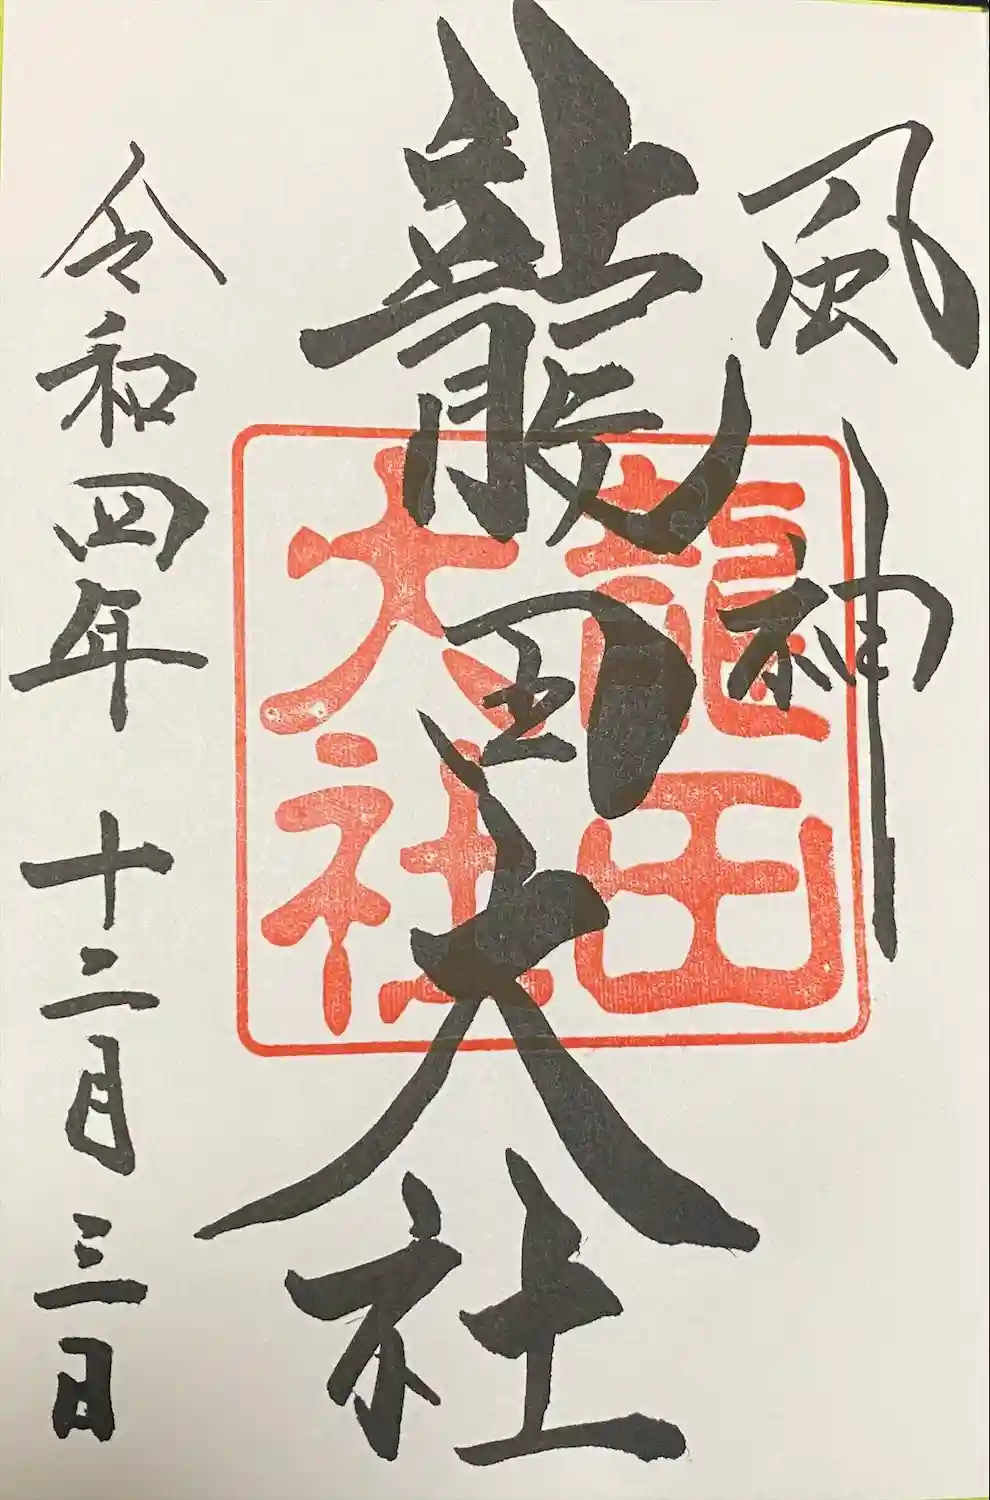 風神
龍田大社
龍田
大社
令和四年十二月三日